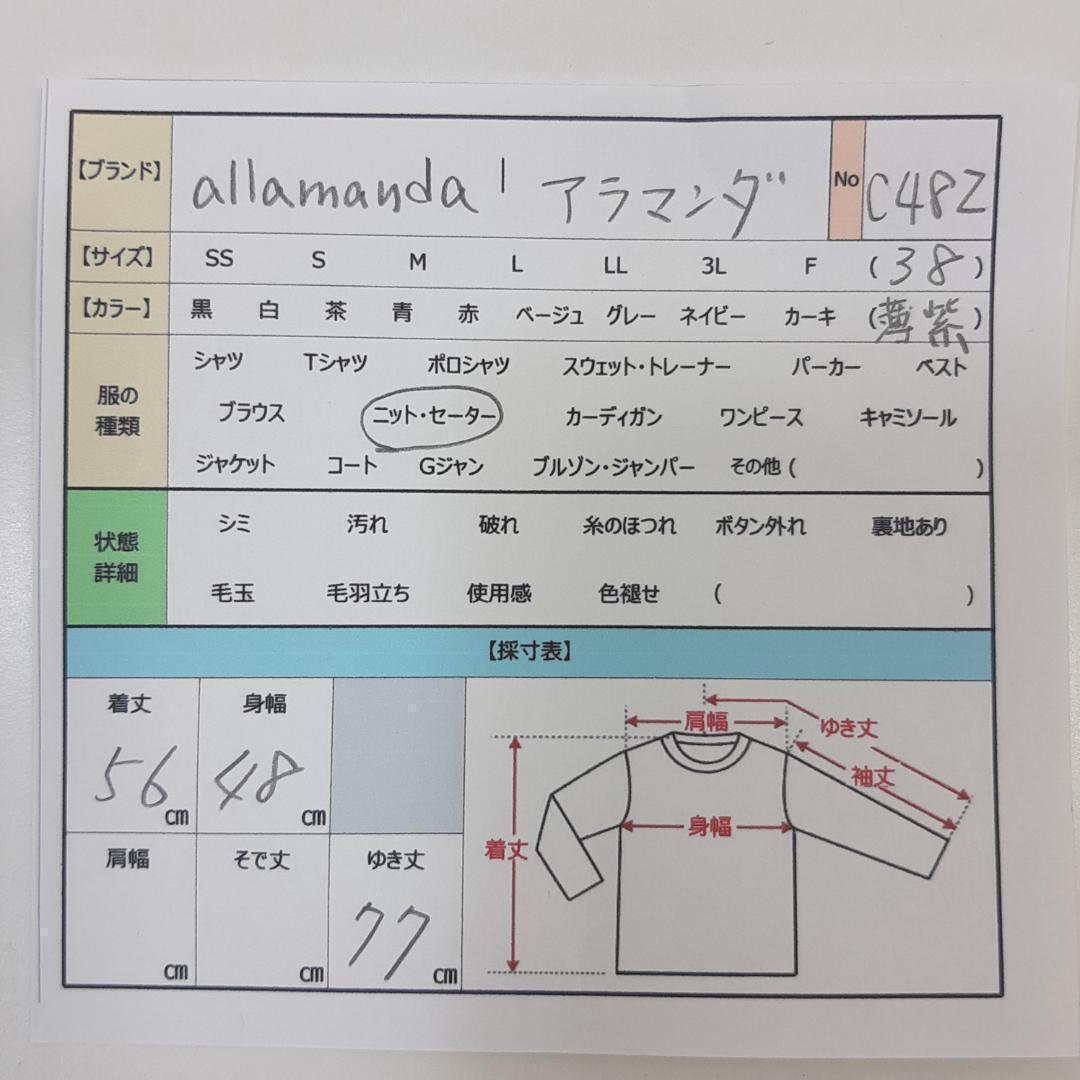 【ブランド】 allamanda' アラマンダ No C482
【サイズ】 SS S M L LL 3L F (38)
【カラー】 黒 白 茶 青 赤 ベージュ グレー ネイビー カーキ (薄紫)
服の種類
シャツ Tシャツ ポロシャツ スウェット・トレーナー パーカー ベスト
ブラウス ニット・セーター カーディガン ワンピース キャミソール
ジャケット コート Gジャン ブルゾン・ジャンパー その他 ( )
状態詳細
シミ 汚れ 破れ 糸のほつれ ボタン外れ 裏地あり
毛玉 毛羽立ち 使用感 色褪せ ( )
【採寸表】
着丈 身幅
56cm 48cm
肩幅 そで丈 ゆき丈
cm cm 77cm
肩幅 ゆき丈
袖丈
身幅
着丈